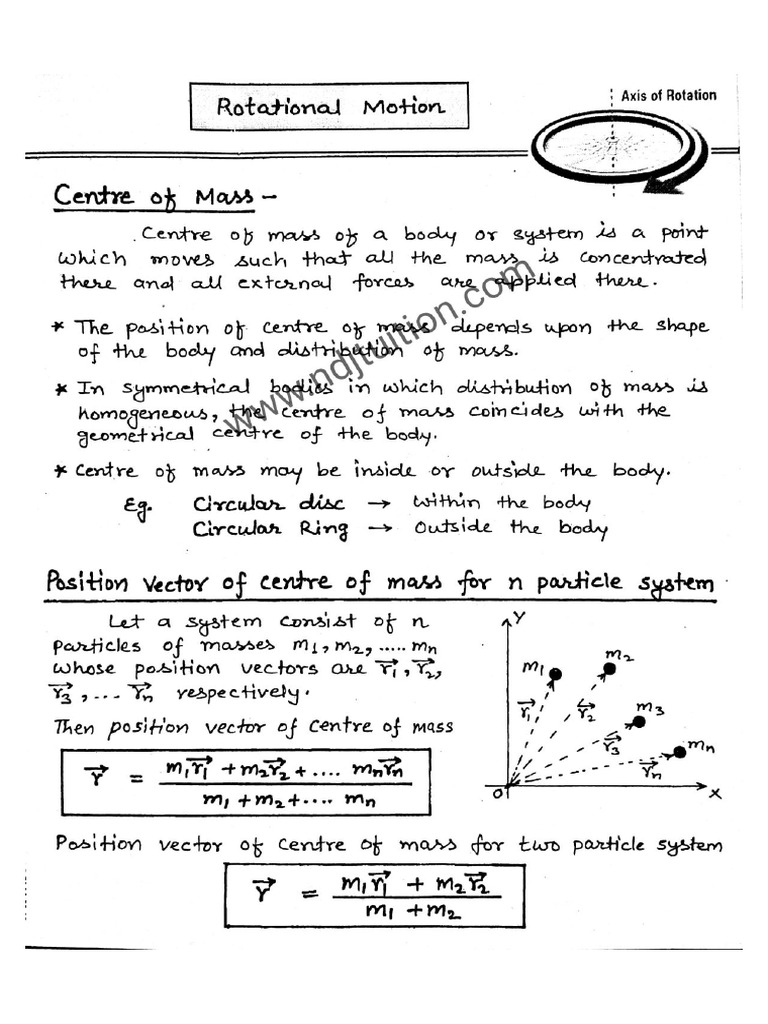 Rotational Motion
Axis of Rotation
Centre of Mass -
Centre of mass of a body or system is a point
which moves such that all the mass is concentrated
there and all external forces are applied there.
* The position of centre of mass depends upon the shape
of the body and distribution of mass.
* In symmetrical bodies in which distribution of mass is
homogeneous, the centre of mass coincides with the
geometrical centre of the body.
* Centre of mass may be inside or outside the body.
Eg. Circular disc → Within the body
Circular Ring → Outside the body
www.ndjtuition.com
Position vector of centre of mass for n particle system
Let a system consist of n
particles of masses m₁, m₂, ..... mn
whose position vectors are r₁⃗, r₂⃗,
r₃⃗, ... rn⃗ respectively.
Then position vector of centre of mass
r⃗ = (m₁r₁⃗ + m₂r₂⃗ + .... mnrn⃗) / (m₁ + m₂ + .... mn)
Y
m₁
m₂
m₃
mn
r₁⃗
r₂⃗
r₃⃗
rn⃗
O
X
Position vector of centre of mass for two particle system
r⃗ = (m₁r₁⃗ + m₂r₂⃗) / (m₁ + m₂)